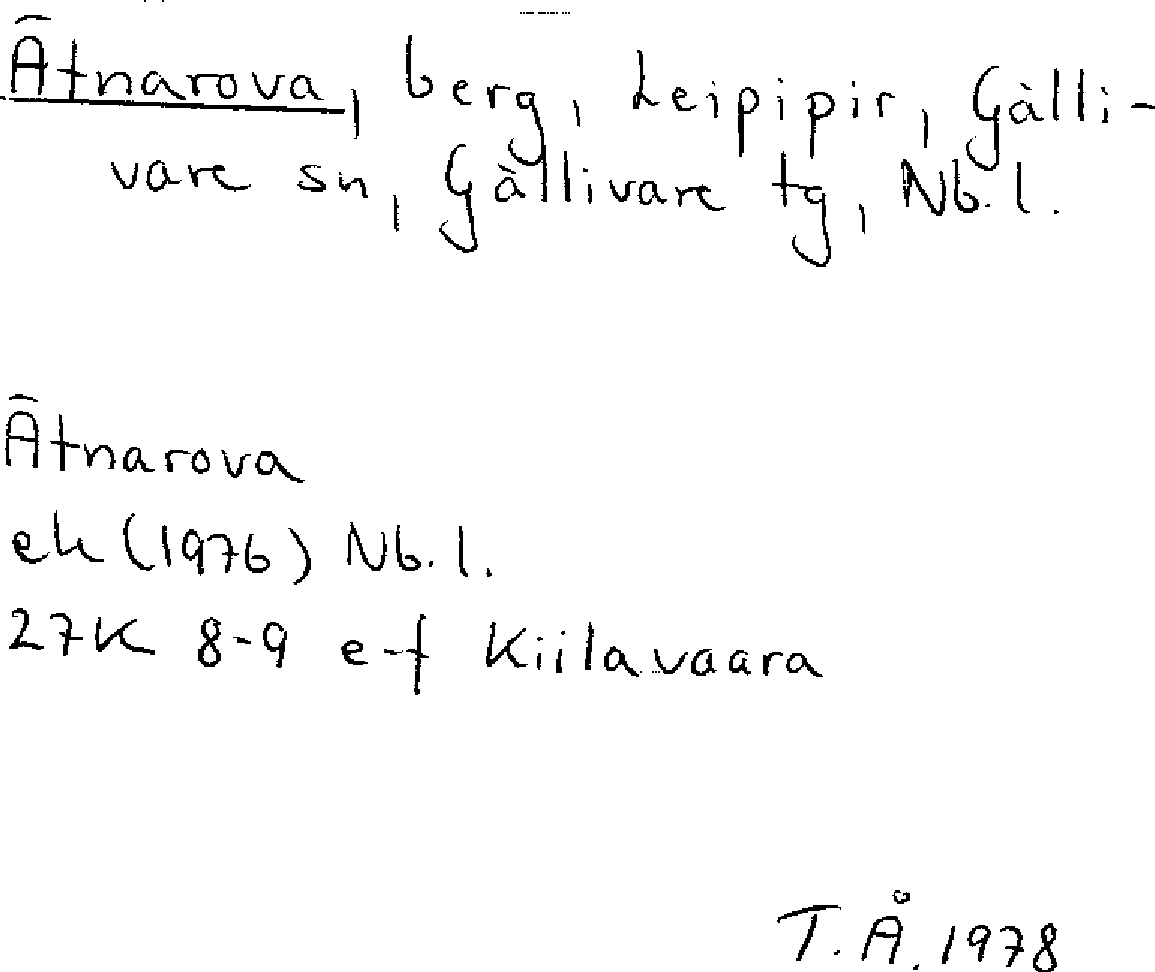 Ätnarova, berg, Leipipir, Gälli-
vare sn, Gällivare tg, Nb. l.
Ätnarova
ek (1976) Nb. l.
27K 8-9 e-f Kiilavaara
T. Å. 1978